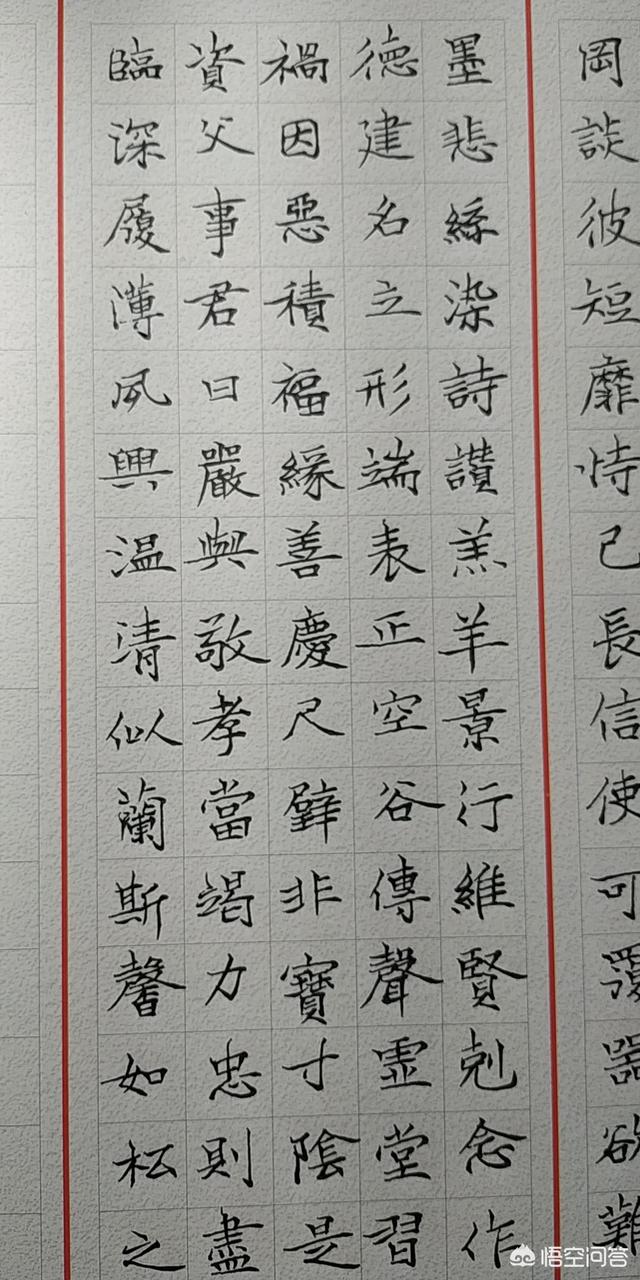 岡談彼短靡恃己長信使可覆器欲難
墨悲絲染詩讚羔羊景行維賢剋念作
德建名立形端表正空谷傳聲虛堂習
禍因惡積福緣善慶尺璧非寶寸陰是
資父事君曰嚴與敬孝當竭力忠則盡
臨深履薄夙興温清似蘭斯馨如松之
悟空问答